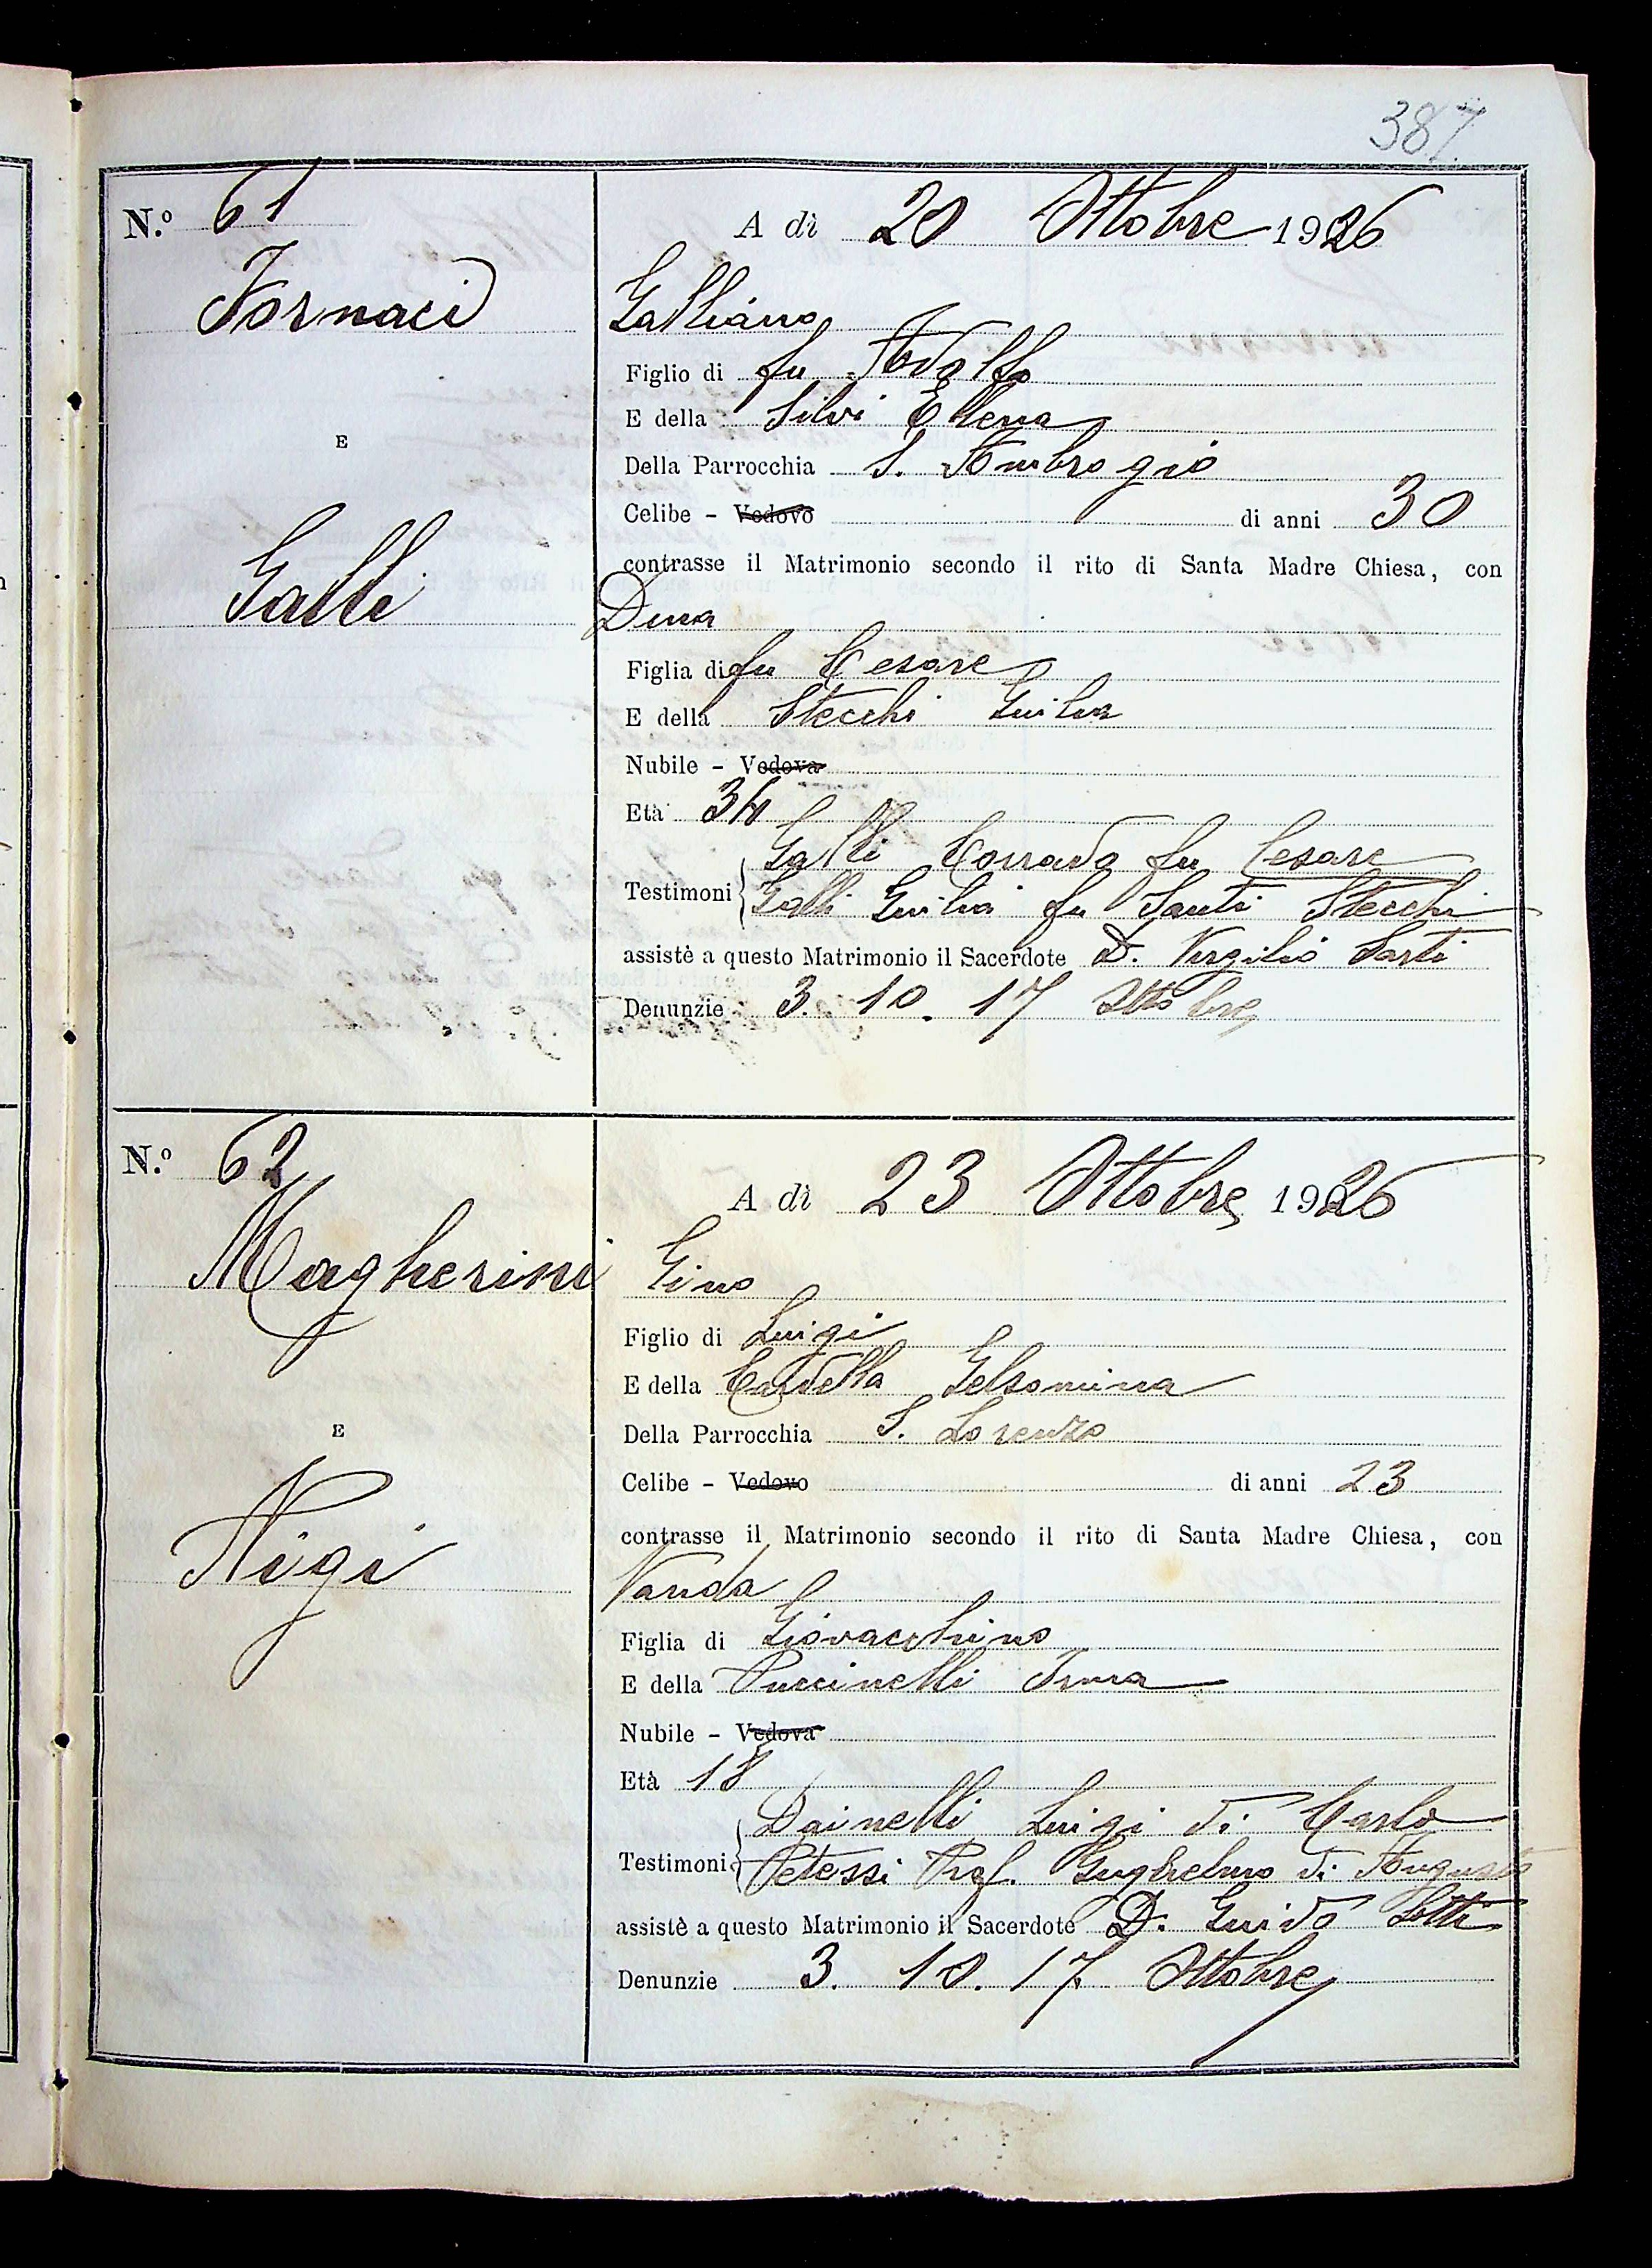 387.
N.º 61
A dì 20 Ottobre 1926
Fornaci
Galliano
Figlio di fu Adolfo
E della Silvi Elena
E
Della Parrocchia S. Ambrogio
Celibe - Vedovo di anni 30
contrasse il Matrimonio secondo il rito di Santa Madre Chiesa, con
Galli
Dina
Figlia di fu Cesare
E della Stecchi Giulia
Nubile - Vedova
Età 34
Galli Corrado fu Cesare
Testimoni Galli Giulia fu Santi Stecchi
assistè a questo Matrimonio il Sacerdote D. Virgilio Sarti
Denunzie 3. 10. 17 Ottobre
N.º 62
A dì 23 Ottobre 1926
Magherini
Gino
Figlio di Luigi
E della Cardella Gelsomina
E
Della Parrocchia S. Lorenzo
Celibe - Vedovo di anni 23
contrasse il Matrimonio secondo il rito di Santa Madre Chiesa, con
Nigi
Vanda
Figlia di Giovacchino
E della Puccinelli Irma
Nubile - Vedova
Età 18
Dainelli Luigi di Carlo
Testimoni Prof. Guglielmo di Augusto
assistè a questo Matrimonio il Sacerdote D. Guido Lotti
Denunzie 3. 10. 17 Ottobre